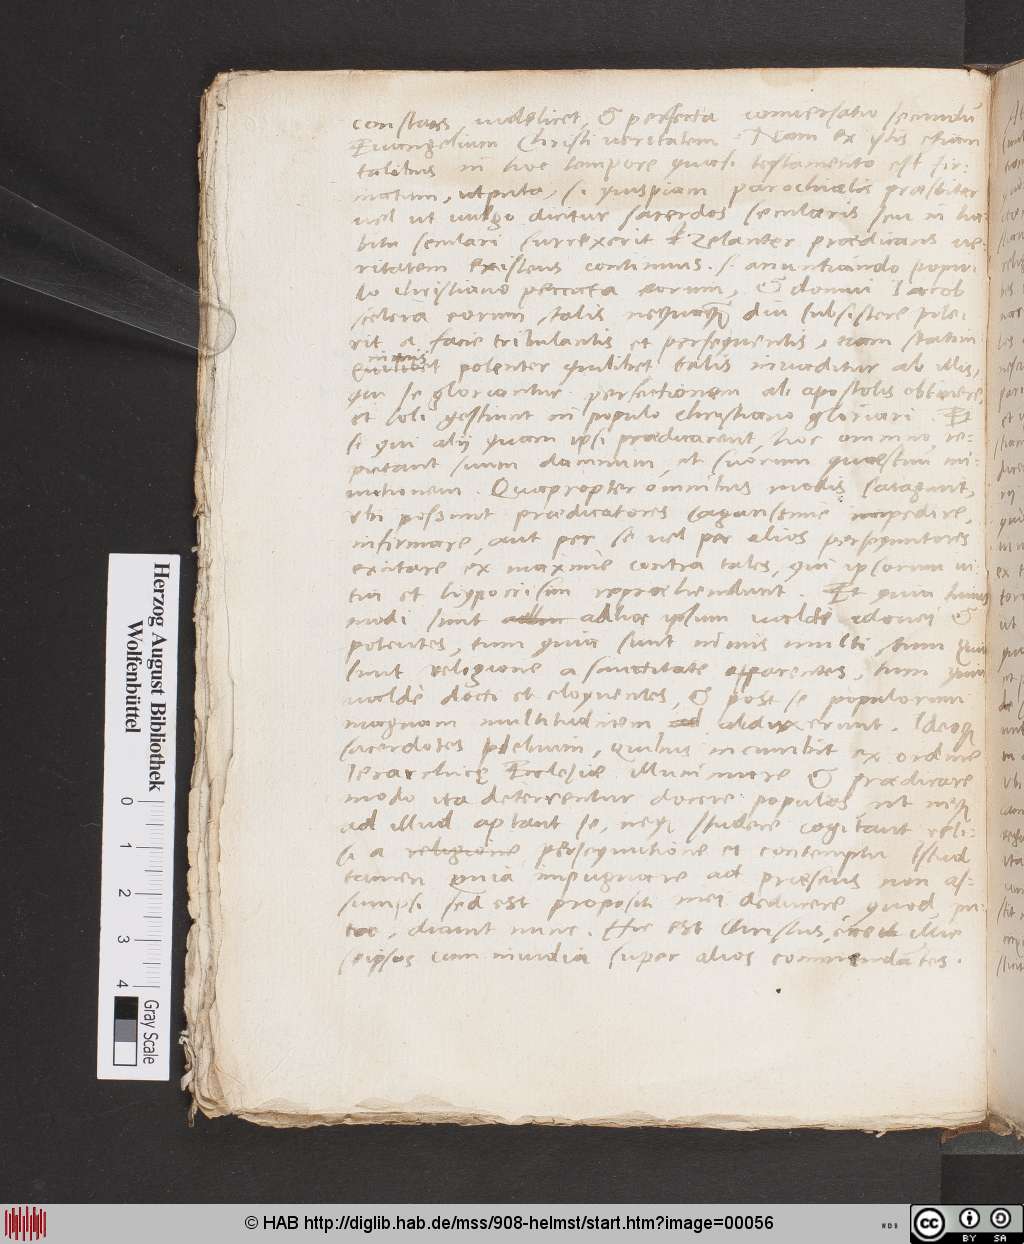 constans videlicet, & perfecta conversatio secundũ
Euangelium Christi veritatem. Nam ex istis etiam
talibus in hoc tempore quasi testamento est fir-
matum, ut puta, si quispiam parochialis præsbiter
vel ut vulgo dicitur sacerdos secularis seu in ha-
bitu seculari surrexerit & zelanter prædicans ve-
ritatem existens continuus. s. anuntiando popu-
lo Christiano peccata eorum, & domui Iacob
scelera eorum, talis nequaquã diu subsistere pote-
rit a facie tribulantis et persequentis, nam statim
nimis
potenter quilibet talis invaditur ab illis,
qui se gloriantur perfectionem ab apostolis obtinere,
et soli gestiunt in populo Christiano gloriari. Et
si qui alij quam ipsi prædicarent, hoc omnino re-
putant suum damnum, et suorum quæstuũ mi-
nutionem. Quapropter omnibus modis satagunt,
ubi possunt prædicatores impedire,
infirmare, aut per se vel per alios persequutores
excitare ex maxime contra tales, qui ipsorum vi-
tia et hypocrisim repræhendunt. Et quia huius
modi sunt ad hoc ipsum valde idonei &
potentes, tum quia sunt nimis multi, tum quia
sunt religione a sanctitate apparentes, tum quia
valdè docti et eloquentes, & post se populorum
magnam multitudinem adduxerunt. Ideoq̃
sacerdotes plebium, quibus incumbit ex ordine
Ierarchicę Ecclesiæ illuminare & prædicare
modo ita deterrentur docere populos, ut neq̃
ad illud aptant se, neq̃ studere cogitant reli-
si a religione persequutione et contemptu. Istud
tamen quia impugnare ad præsens non as-
sumpsi sed est propositi mei deducere quod pu-
to, dicunt nunc. Hic est Christus, ecce illic
seipsos cum invidia super alios commendãtes.
Herzog August Bibliothek
Wolfenbüttel
0 1 2 3 4
Gray Scale
© HAB http://diglib.hab.de/mss/908-helmst/start.htm?image=00056
WDB
cc BY SA